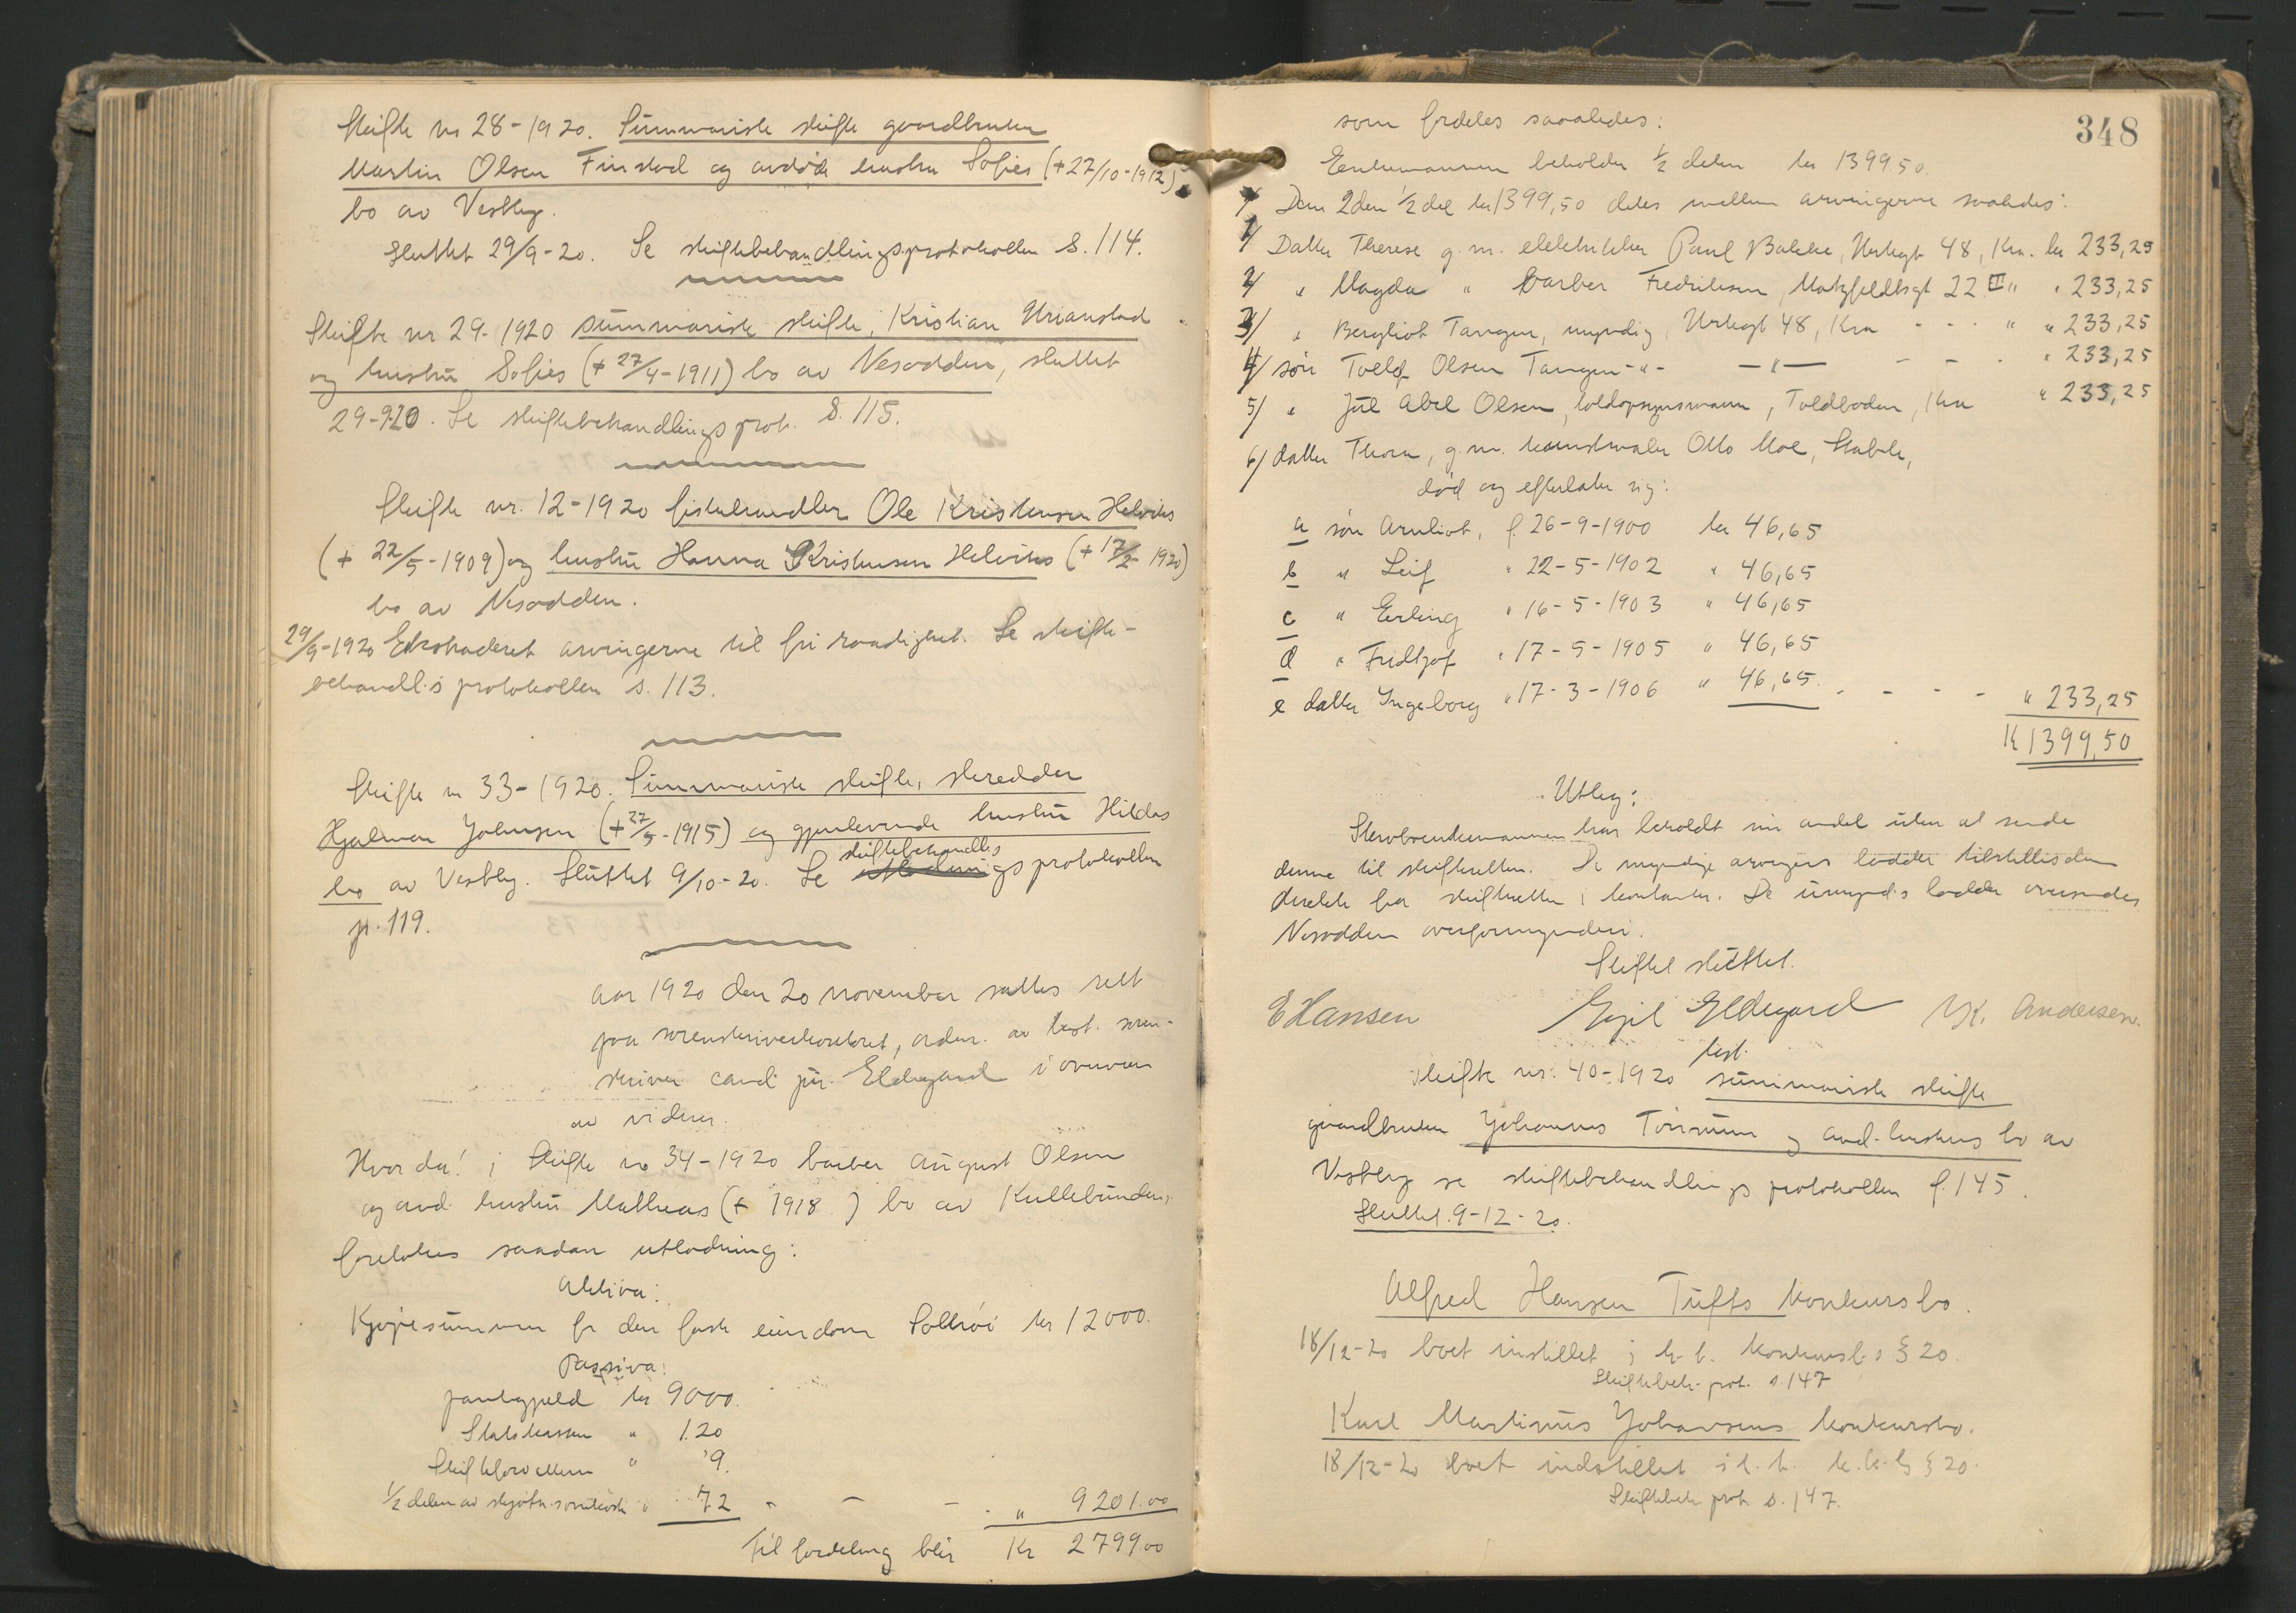 Skifte nr 28-1920. Summarisk skifte gaardbruker
Martin Olsen Finstad og avdøde hustru Sofies (+27/10-1912)
bo av Vestby.
Sluttet 29/9-20. Se skiftebehandlingsprotokollen S. 114.
Skifte nr 29-1920 summarisk skifte, Kristian Urianstad
og hustru Sofies (+ 27/4-1911) bo av Nesodden, sluttet
29-9-20. Se skiftebehandlingsprot. S. 115.
Skifte nr. 12-1920 fiskehandler Ole Kristensen Helviks
(+ 22/5-1909) og hustru Hanna Kristensen Helviks (+ 17/2 1920)
bo av Nesodden.
29/9-1920 Ekstraderet arvingerne til fri raadighet. Se skifte-
behandl.s protokollen s. 113.
Skifte nr 33-1920. Summarisk skifte, skredder
Hjalmar Johnsen (+27/5-1915) og gjenlevende hustru Hildas
skiftebehandli
bo av Vestby. Sluttet 9/10-20. Se ngsprotokollen
p. 119.
Aar 1920 den 20 november sattes rett
paa sorenskriverkontoret, adm. av kst. soren-
skriver cand. jur. Eldegard i overvær
av vidner.
Hvorda! i Skifte no 34-1920 barber August Olsen
og avd. hustru Matheas (+ 1918 ) bo av
foretokes saadan utlodning:
Aktiva:
Kjøpesummen for den faste eiendom Solhøi kr 12000.
Passiva:
pantegjeld kr 9000.
Statskassen " 120
Skifteforvalteren " 9.
1/2 delen av skjøtn.somkostn. " 72 - - - " 9201.00
Til fordeling blir Kr 2799.00
348
som fordeles saaledes:
Enkemannen beholder 1/2 delen kr 1399.50.
Den 2den 1/2 del kr 1399,50 deles mellem arvingerne saaledes:
1/ Datter Therese g.m. elektriker Paul Bakke, Urtegt 48, Kra. kr 233,25
2/ " Magda " barber Fredriksen, Motzfeldtsgt 22 III " " 233,25
3/ " Bergliot Tangen, myndig, Urtegt 48, Kra - - - " " 233,25
4/ søn Tollef Olsen Tangen -"- -"- - - - " 233,25
5/ " Jul Abel Olsen, toldopsynsmann, Toldboden, Kra " 233,25
6/ datter Thora, g.m. kunstmaler Otto Moe,
død og efterlater sig:
a søn Arnliot, f. 26-9-1900 kr 46,65
b " Leif " 22-5-1902 " 46,65
c " Erling " 16-5-1903 " 46,65
d " Fridtjof " 17-5-1905 " 46,65
e datter Ingeborg " 17-3-1906 " 46,65. - - - - " 233,25
K 1399,50
Utlæg:
har beholdt sin andel uten at sende
denne til skifteretten. De myndige arvingers lodder tilstilles dem
direkte fra skifteretten i kontanter. De umynd.s lodder oversendes
Nesodden overformynderi.
Skiftet sluttet.
E Hansen Egil Eldegard K. Andersen.
kst.
Skifte nr. 40-1920 summarisk skifte
gaardbruker Johannes Tørmum og avd. hustrus bo av
Vestby se skiftebehandlingsprotokollen f. 145.
Sluttet. 9-12-20.
Alfred Hansen Tufts konkursbo.
18/12-20 boet instillet i h. t. konkursl.s § 20.
Skiftebeh. prot. s. 147
Karl Martinus Johansens konkursbo.
18/12-20 boet indstillet i h. t. k.k.l. § 20.
Skiftebeh. prot. s. 147.